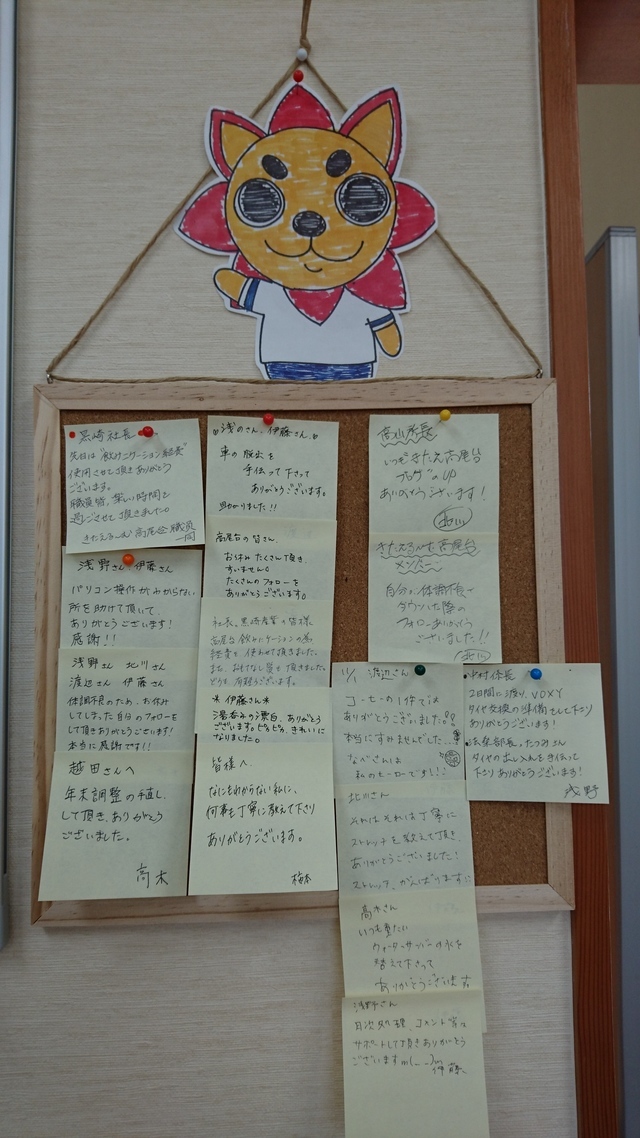 黒崎社長
先日は"飲みニケーション経費"
使用させて頂きありがとう
ございます。
職員皆、楽しい時間を
過ごさせて頂きました。
きたえるーむ 高尾台 職員一同
浅野さん 伊藤さん
パソコン操作がみからない
所を助けて頂いて、
ありがとうございます!
感謝!!
浅野さん 北川さん
渡辺さん 伊藤さん
体調不良のため、お休み
してしまった自分のフォローを
して頂きありがとうございます!
本当に感謝です!!
越田さんへ
年末調整の手直し、
して頂き、ありがとう
ございました。
高木
浅のさん、伊藤さん、
車の脱出を
手伝って下さって
ありがとうございます。
助かりました!!
高尾台の皆さん、
お休みたくさん頂き、
すいません。
たくさんのフォローを
ありがとうございます。
社長、黒崎産業の皆様
高尾台飲みニケーションの為
経費を使わせて頂きました。
どうも有難うございます。
*伊藤さん*
湯呑みの漂白、ありがとう
ございます。ピカピカ、きれいに
なりました。
皆様へ
なにもわからない私に、
何事も丁寧に教えて下さり
ありがとうございます。
梅本
高山所長
いつもきたえる高尾台
ブログのUP
ありがとうございます!
北川
きたえるーむ高尾台
メンバー
自分の体調不良で
ダウンした際の
フォローありがとう
ございました!!
北川
渡辺さん
コーヒーの1件では
ありがとうございました!!
本当にすみませんでした…
なべさんは
私のヒーローです!!
北川さん
それはそれは丁寧に
ストレッチを教えて頂き、
ありがとうございました!
ストレッチ、がんばります
高木さん
いつも重たい
ウォーターサーバーの水を
替えて下さって
ありがとうございます
浅野さん
日次処理、コメント等の
サポートして頂きありがとう
ございますm(_ _)m
伊藤
・中村係長
2日間に渡り、VOXY
タイヤ交換の準備をして下さり
ありがとうございます!
タイヤの出し入れを手伝って
下さりありがとうございます!
浅野